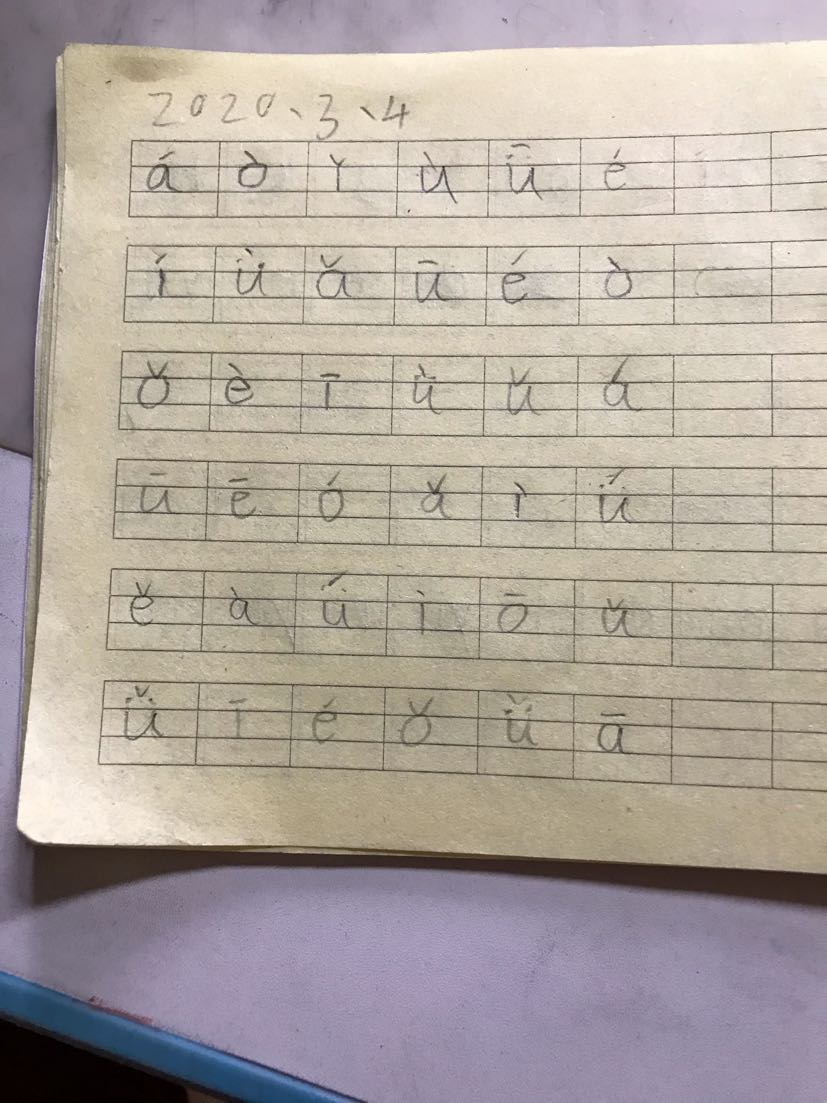 2020、3、4
á ò ǐ ù ǖ é
í ǜ ǎ ū é ò
ǒ è ī ǜ ǔ á
ū ē ó ǎ ì ǘ
ě à ǘ ì ō ǔ
ǚ ī é ǒ ǚ ā